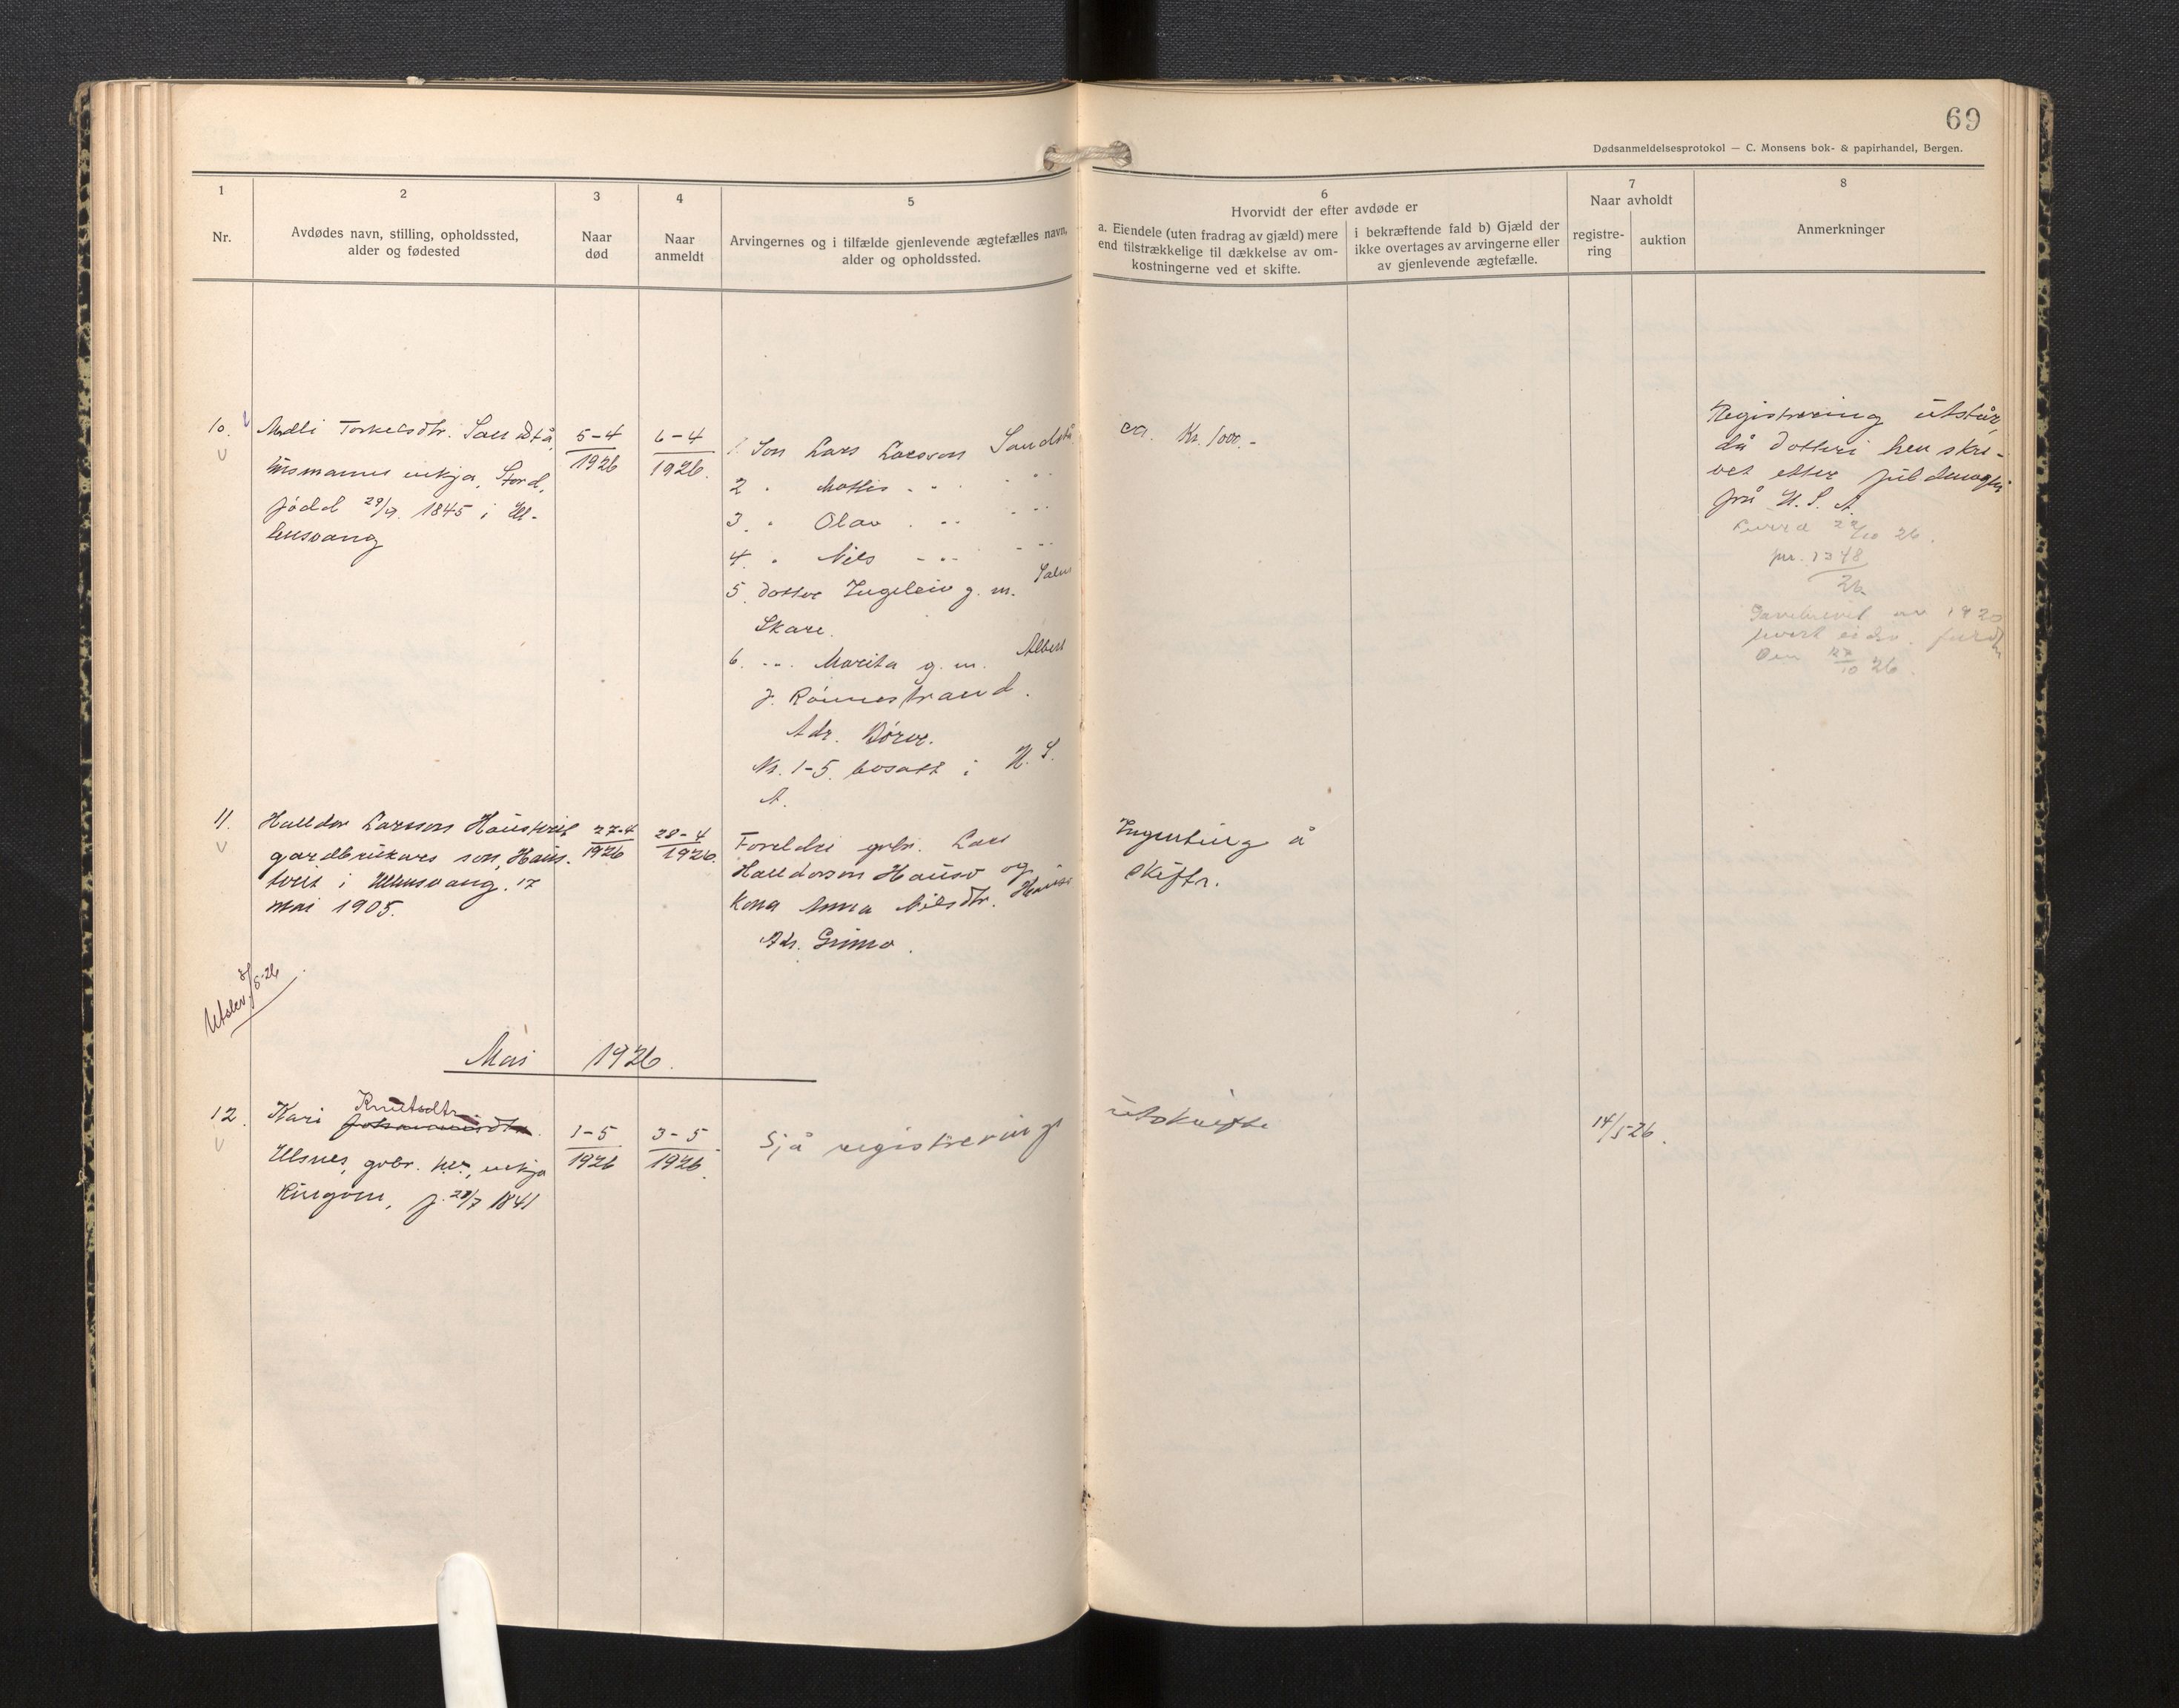 69
Dødsanmeldelsesprotokol — C. Monsens bok- & papirhandel, Bergen.
1
Nr.
2
Avdødes navn, stilling, opholdssted,
alder og fødested
3
Naar
død
4
Naar
anmeldt
5
Arvingernes og i tilfælde gjenlevende ægtefælles navn,
alder og opholdssted.
6
Hvorvidt der efter avdøde er
a. Eiendele (uten fradrag av gjæld) mere
end tilstrækkelige til dækkelse av om-
kostningerne ved et skifte.
i bekræftende fald b) Gjæld der
ikke overtages av arvingerne eller
av gjenlevende ægtefælle.
7
Naar avholdt
registre-
ring
auktion
8
Anmerkninger
10.
Torkelsdtr. Sandstå
husmanns enkja, Stord,
født 29/9. 1845 i Ul-
lensvang
5-4
1926
6-4
1926.
1. Son Lars Larsson Sandstå
2 " Mattis - " - "
3. " Olav . - " - "
4. " Nils - " - - "
5. Dotter Ingeleiv g. m.
Skare.
6. - " - Marita g. m. Albert
J. Rönnestrand.
Adr. Börve.
Nr. 1-5. bosatt i U. S.
A.
ca. Kr. 1000.-
Registrering utstår,
då dotteri hev skri-
vet etter fuldmagti
frå U. S. A.
26.
1348
26
1920
Den 27/10 26.
11.
Halldor Larsson
gardbrukars son,
i Ullensvang. 17
mai 1905.
27-4
1926
28-4
1926.
Foreldri gbr. Lars
Halldorson Hauso og
kona Anna Nilsdtr.
Adr. Grimo.
Ingenting å
skifta.
Utslev. /5-26
Mai 1926.
12.
Kari Knutsdtr.
Ulsnes, gbr. enkja
Ringöen, f. 28/7 1841
1-5
1926
3-5
1926.
Sjå registrering
utskrifti
14/5 26.